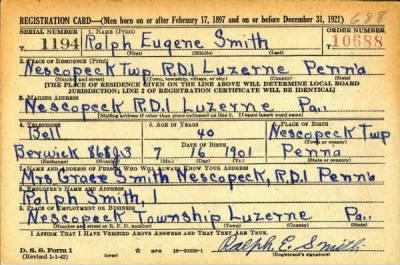 REGISTRATION CARD—(Men born on or after February 17, 1897 and on or before December 31, 1921) 688
SERIAL NUMBER 1. NAME (Print) ORDER NUMBER
1194 Ralph Eugene Smith 10688
(First) (Middle) (Last)
2. PLACE OF RESIDENCE (Print)
Nescopeck Twp R.D.1 Luzerne Penn'a
(Number and street) (Town, township, village, or city) (County) (State)
[THE PLACE OF RESIDENCE GIVEN ON THE LINE ABOVE WILL DETERMINE LOCAL BOARD
JURISDICTION; LINE 2 OF REGISTRATION CERTIFICATE WILL BE IDENTICAL]
3. MAILING ADDRESS
Nescopeck R.D.1 Luzerne Pa.
[Mailing address if other than place indicated on line 2. If same insert word same]
4. TELEPHONE 5. AGE IN YEARS 6. PLACE OF BIRTH
Bell 40 Nescopeck Twp
DATE OF BIRTH (Town or county)
Berwick 7 16 1901 Penna
(Exchange) (Number) (Mo.) (Day) (Yr.) (State or country)
7. NAME AND ADDRESS OF PERSON WHO WILL ALWAYS KNOW YOUR ADDRESS
Mrs Grace Smith Nescopeck, R.D.1 Penna
8. EMPLOYER'S NAME AND ADDRESS
Ralph Smith,
9. PLACE OF EMPLOYMENT OR BUSINESS
Nescopeck Township Luzerne Pa.
(Number and street or R. F. D. number) (Town) (County) (State)
I AFFIRM THAT I HAVE VERIFIED ABOVE ANSWERS AND THAT THEY ARE TRUE.
D. S. S. Form 1
(Revised 1-1-42) (over) GPO 16—21630-1 Ralph E. Smith
(Registrant's signature)